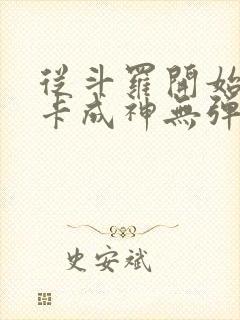 從斗羅開始
卡成神無彈
史安斌